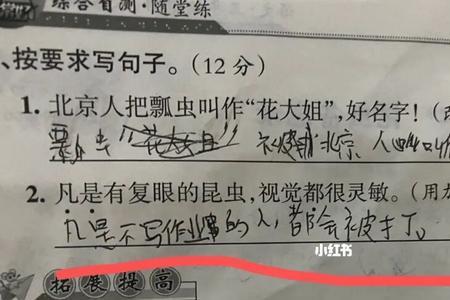 综合自测·随堂练
、按要求写句子。(12分)
1. 北京人把瓢虫叫作“花大姐”,好名字!(
瓢虫“花大姐”被北京人叫作
2. 凡是有复眼的昆虫,视觉都很灵敏。(用
凡是不写作业的人,都会被打。
小红书
拓展提高